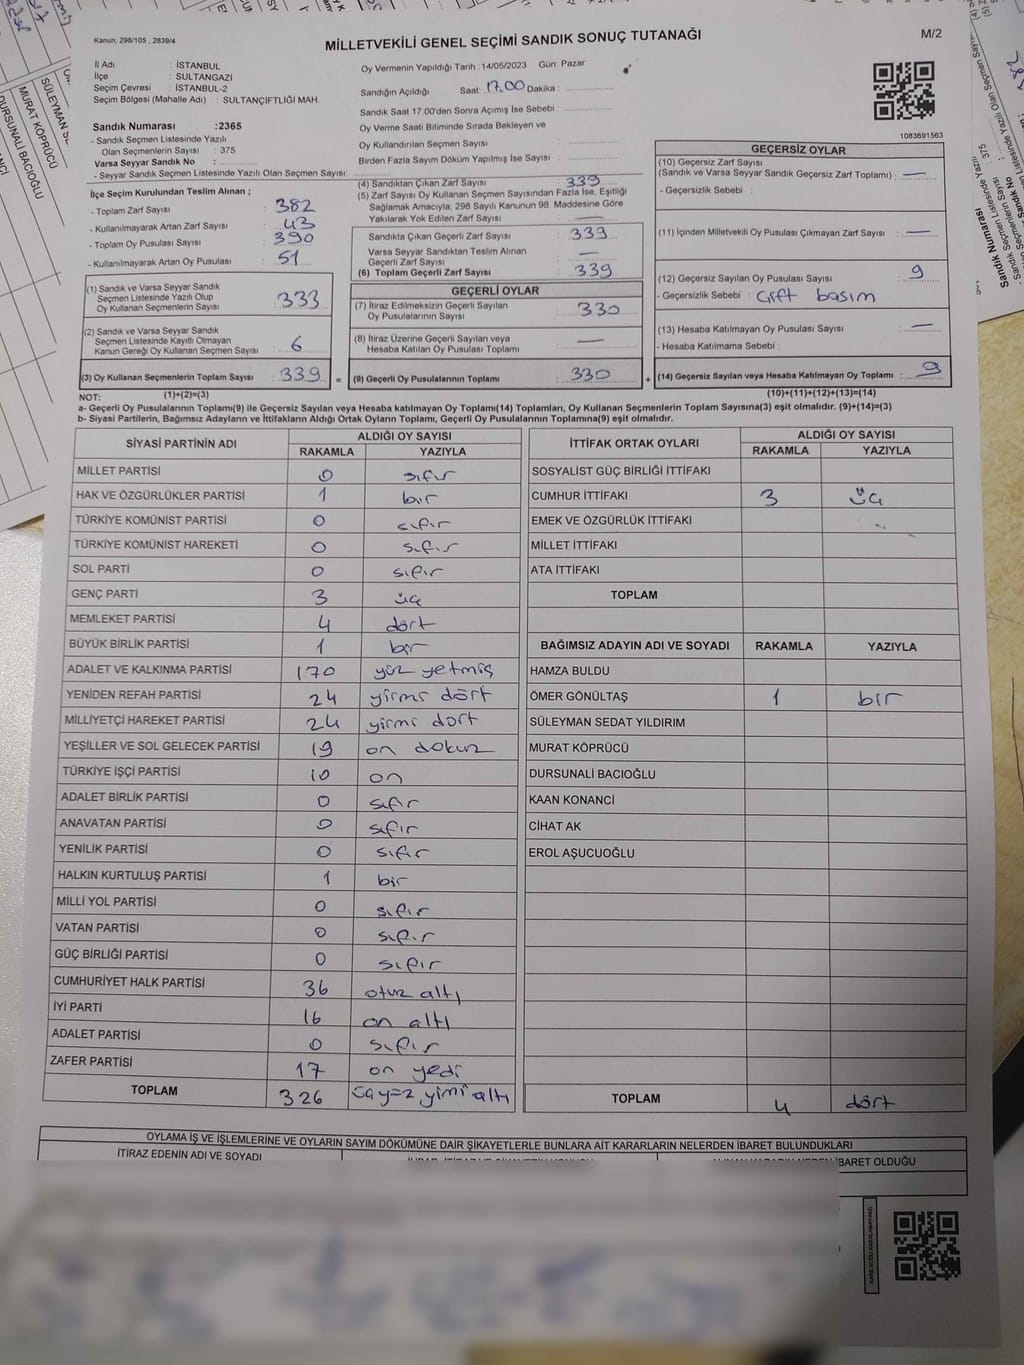 Kanun: 298/105 , 2839/4
MİLLETVEKİLİ GENEL SEÇİMİ SANDIK SONUÇ TUTANAĞI
M/2
İl Adı : İSTANBUL
İlçe : SULTANGAZİ
Seçim Çevresi : İSTANBUL-2
Seçim Bölgesi (Mahalle Adı) : SULTANÇİFTLİĞİ MAH.
Sandık Numarası :2365
- Sandık Seçmen Listesinde Yazılı
Olan Seçmenlerin Sayısı : 375
Varsa Seyyar Sandık No :
- Seyyar Sandık Seçmen Listesinde Yazılı Olan Seçmen Sayısı:
Oy Vermenin Yapıldığı Tarih : 14/05/2023 Gün: Pazar
Sandığın Açıldığı Saat: 17.00 Dakika :
Sandık Saat 17:00'den Sonra Açımış İse Sebebi :
Oy Verme Saati Bitiminde Sırada Bekleyen ve
Oy Kullandırılan Seçmen Sayısı :
Birden Fazla Sayım Döküm Yapılmış İse Sayısı :
1083691563
İlçe Seçim Kurulundan Teslim Alınan ;
- Toplam Zarf Sayısı : 382
- Kullanılmayarak Artan Zarf Sayısı : 43
- Toplam Oy Pusulası Sayısı : 390
- Kullanılmayarak Artan Oy Pusulası : 51
(1) Sandık ve Varsa Seyyar Sandık
Seçmen Listesinde Yazılı Olup
Oy Kullanan Seçmenlerin Sayısı : 333
(2) Sandık ve Varsa Seyyar Sandık
Seçmen Listesinde Kayıtlı Olmayan
Kanun Gereği Oy Kullanan Seçmen Sayısı : 6
(3) Oy Kullanan Seçmenlerin Toplam Sayısı : 339
(4) Sandıktan Çıkan Zarf Sayısı : 339
(5) Zarf Sayısı Oy Kullanan Seçmen Sayısından Fazla İse, Eşitliği
Sağlamak Amacıyla, 298 Sayılı Kanunun 98. Maddesine Göre
Yakılarak Yok Edilen Zarf Sayısı : —
Sandıkta Çıkan Geçerli Zarf Sayısı : 339
Varsa Seyyar Sandıktan Teslim Alınan
Geçerli Zarf Sayısı : —
(6) Toplam Geçerli Zarf Sayısı : 339
GEÇERLİ OYLAR
(7) İtiraz Edilmeksizin Geçerli Sayılan
Oy Pusulalarının Sayısı : 330
(8) İtiraz Üzerine Geçerli Sayılan veya
Hesaba Katılan Oy Pusulası Toplamı : —
= (9) Geçerli Oy Pusulalarının Toplamı : 330
GEÇERSİZ OYLAR
(10) Geçersiz Zarf Sayısı
(Sandık ve Varsa Seyyar Sandık Geçersiz Zarf Toplamı) : —
- Geçersizlik Sebebi :
(11) İçinden Milletvekili Oy Pusulası Çıkmayan Zarf Sayısı : —
(12) Geçersiz Sayılan Oy Pusulası Sayısı : 9
- Geçersizlik Sebebi : çift basım
(13) Hesaba Katılmayan Oy Pusulası Sayısı : —
- Hesaba Katılmama Sebebi :
+ (14) Geçersiz Sayılan veya Hesaba Katılmayan Oy Toplamı : 9
NOT: (1)+(2)=(3) (10)+(11)+(12)+(13)=(14)
a- Geçerli Oy Pusulasının Toplamı(9) ile Geçersiz Sayılan veya Hesaba katılmayan Oy Toplamı(14) Toplamları, Oy Kullanan Seçmenlerin Toplam Sayısına(3) eşit olmalıdır. (9)+(14)=(3)
b- Siyasi Partilerin, Bağımsız Adayların ve İttifakların Aldığı Ortak Oyların Toplamı, Geçerli Oy Pusulalarının Toplamına(9) eşit olmalıdır.
SİYASİ PARTİNİN ADI ALDIĞI OY SAYISI
RAKAMLA YAZIYLA
MİLLET PARTİSİ 0 sıfır
HAK VE ÖZGÜRLÜKLER PARTİSİ 1 bir
TÜRKİYE KOMÜNİST PARTİSİ 0 sıfır
TÜRKİYE KOMÜNİST HAREKETİ 0 sıfır
SOL PARTİ 0 sıfır
GENÇ PARTİ 3 üç
MEMLEKET PARTİSİ 4 dört
BÜYÜK BİRLİK PARTİSİ 1 bir
ADALET VE KALKINMA PARTİSİ 170 yüz yetmiş
YENİDEN REFAH PARTİSİ 24 yirmi dört
MİLLİYETÇİ HAREKET PARTİSİ 24 yirmi dört
YEŞİLLER VE SOL GELECEK PARTİSİ 19 on dokuz
TÜRKİYE İŞÇİ PARTİSİ 10 on
ADALET BİRLİK PARTİSİ 0 sıfır
ANAVATAN PARTİSİ 0 sıfır
YENİLİK PARTİSİ 0 sıfır
HALKIN KURTULUŞ PARTİSİ 1 bir
MİLLİ YOL PARTİSİ 0 sıfır
VATAN PARTİSİ 0 sıfır
GÜÇ BİRLİĞİ PARTİSİ 0 sıfır
CUMHURİYET HALK PARTİSİ 36 otuz altı
İYİ PARTİ 16 on altı
ADALET PARTİSİ 0 sıfır
ZAFER PARTİSİ 17 on yedi
TOPLAM 326 yimi altı
İTTİFAK ORTAK OYLARI ALDIĞI OY SAYISI
RAKAMLA YAZIYLA
SOSYALİST GÜÇ BİRLİĞİ İTTİFAKI
CUMHUR İTTİFAKI 3 üç
EMEK VE ÖZGÜRLÜK İTTİFAKI
MİLLET İTTİFAKI
ATA İTTİFAKI
TOPLAM
BAĞIMSIZ ADAYIN ADI VE SOYADI RAKAMLA YAZIYLA
HAMZA BULDU
ÖMER GÖNÜLTAŞ 1 bir
SÜLEYMAN SEDAT YILDIRIM
MURAT KÖPRÜCÜ
DURSUNALİ BACIOĞLU
KAAN KONANCİ
CİHAT AK
EROL AŞUCUOĞLU
TOPLAM 4 dört
OYLAMA İŞ VE İŞLEMLERİNE VE OYLARIN SAYIM DÖKÜMÜNE DAİR ŞİKAYETLERLE BUNLARA AİT KARARLARIN NELERDEN İBARET BULUNDUKLARI
İTİRAZ EDENİN ADI VE SOYADI
İBARET OLDUĞU
MURAT KÖPRÜCÜ
DURSUNALİ BACIOĞLU
Sandık Numarası